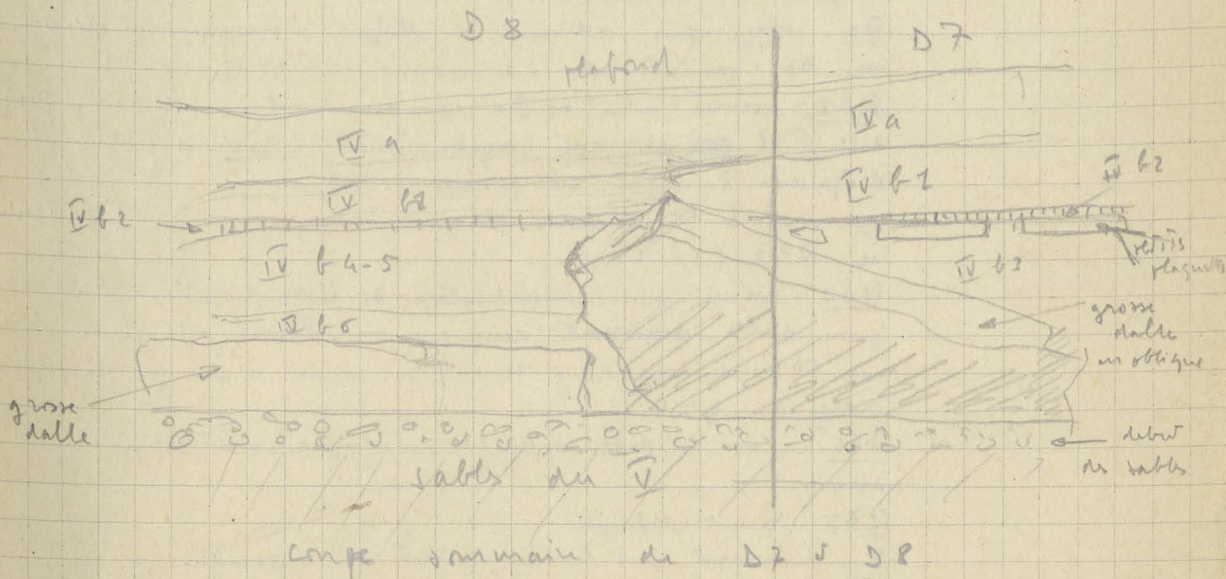 D 8
D 7
plafond
IV a
IV a
IV b1
IV b1
IV b2
IV b2
petits
plaquis
IV b 4-5
IV b3
IV b6
grosse
dalle
en oblique
grosse
dalle
début
des sables
sables du V
coupe sommaire de D7 à D8